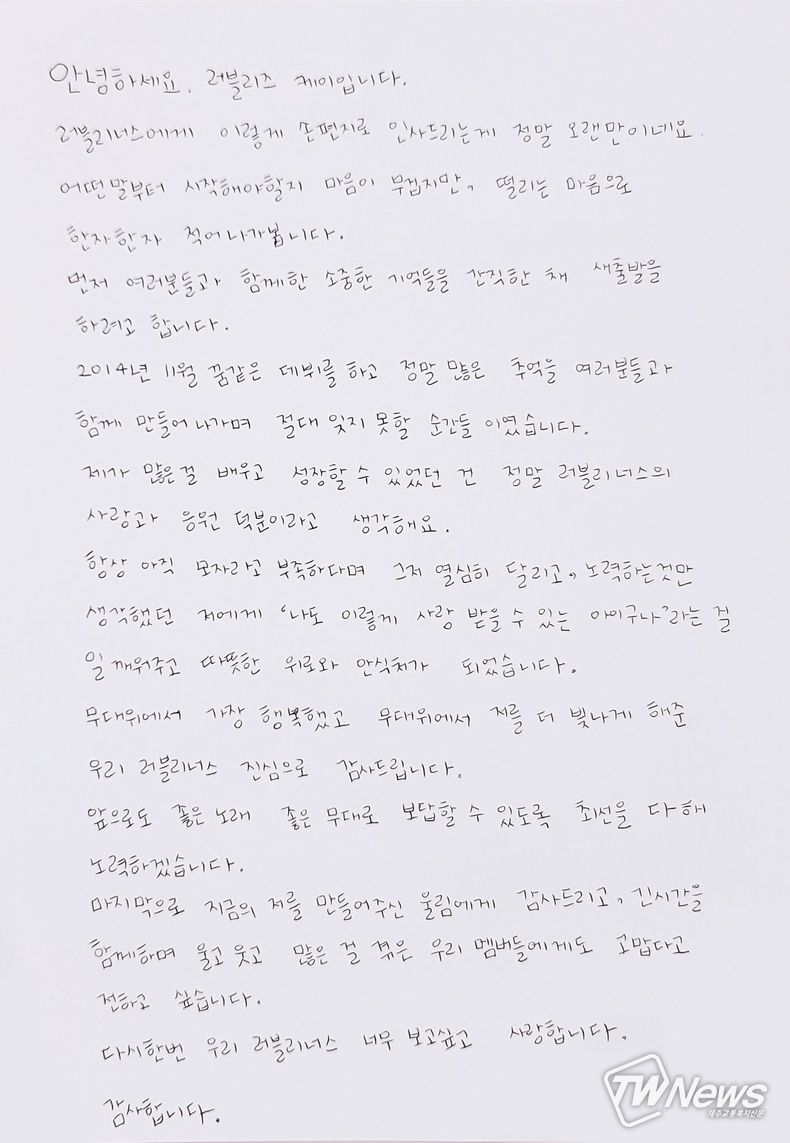 안녕하세요. 러블리즈 케이입니다.
러블리너스에게 이렇게 손편지로 인사드리는게 정말 오랜만이네요.
어떤말부터 시작해야할지 마음이 무겁지만, 떨리는 마음으로
한자한자 적어나가봅니다.
먼저 여러분들과 함께한 소중한 기억들을 간직한 채 새출발을
하려고 합니다.
2014년 11월 꿈같은 데뷔를 하고 정말 많은 추억을 여러분들과
함께 만들어나가며 절대 잊지 못할 순간들 이였습니다.
제가 많은걸 배우고 성장할 수 있었던 건 정말 러블리너스의
사랑과 응원 덕분이라고 생각해요.
항상 아직 모자라고 부족하다며 그저 열심히 달리고, 노력하는것만
생각했던 저에게 '나도 이렇게 사랑 받을 수 있는 아이구나'라는 걸
일깨워주고 따뜻한 위로와 안식처가 되었습니다.
무대위에서 가장 행복했고 무대위에서 저를 더 빛나게 해준
우리 러블리너스 진심으로 감사드립니다.
앞으로도 좋은 노래 좋은 무대로 보답할 수 있도록 최선을 다해
노력하겠습니다.
마지막으로 지금의 저를 만들어주신 울림에게 감사드리고, 긴시간을
함께하며 울고 웃고 많은 걸 겪은 우리 멤버들에게도 고맙다고
전하고 싶습니다.
다시한번 우리 러블리너스 너무 보고싶고 사랑합니다.
감사합니다.
TWNews
제주교통복지신문